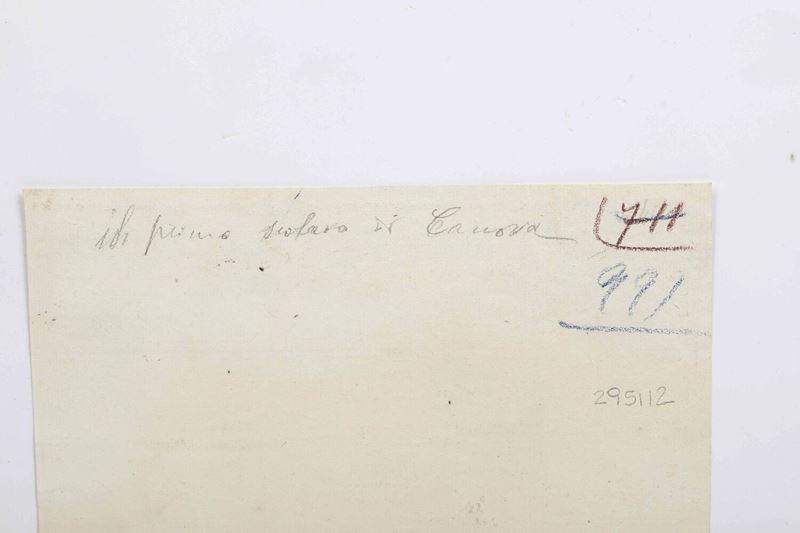 il primo scolaro di Canova
711
991
295112